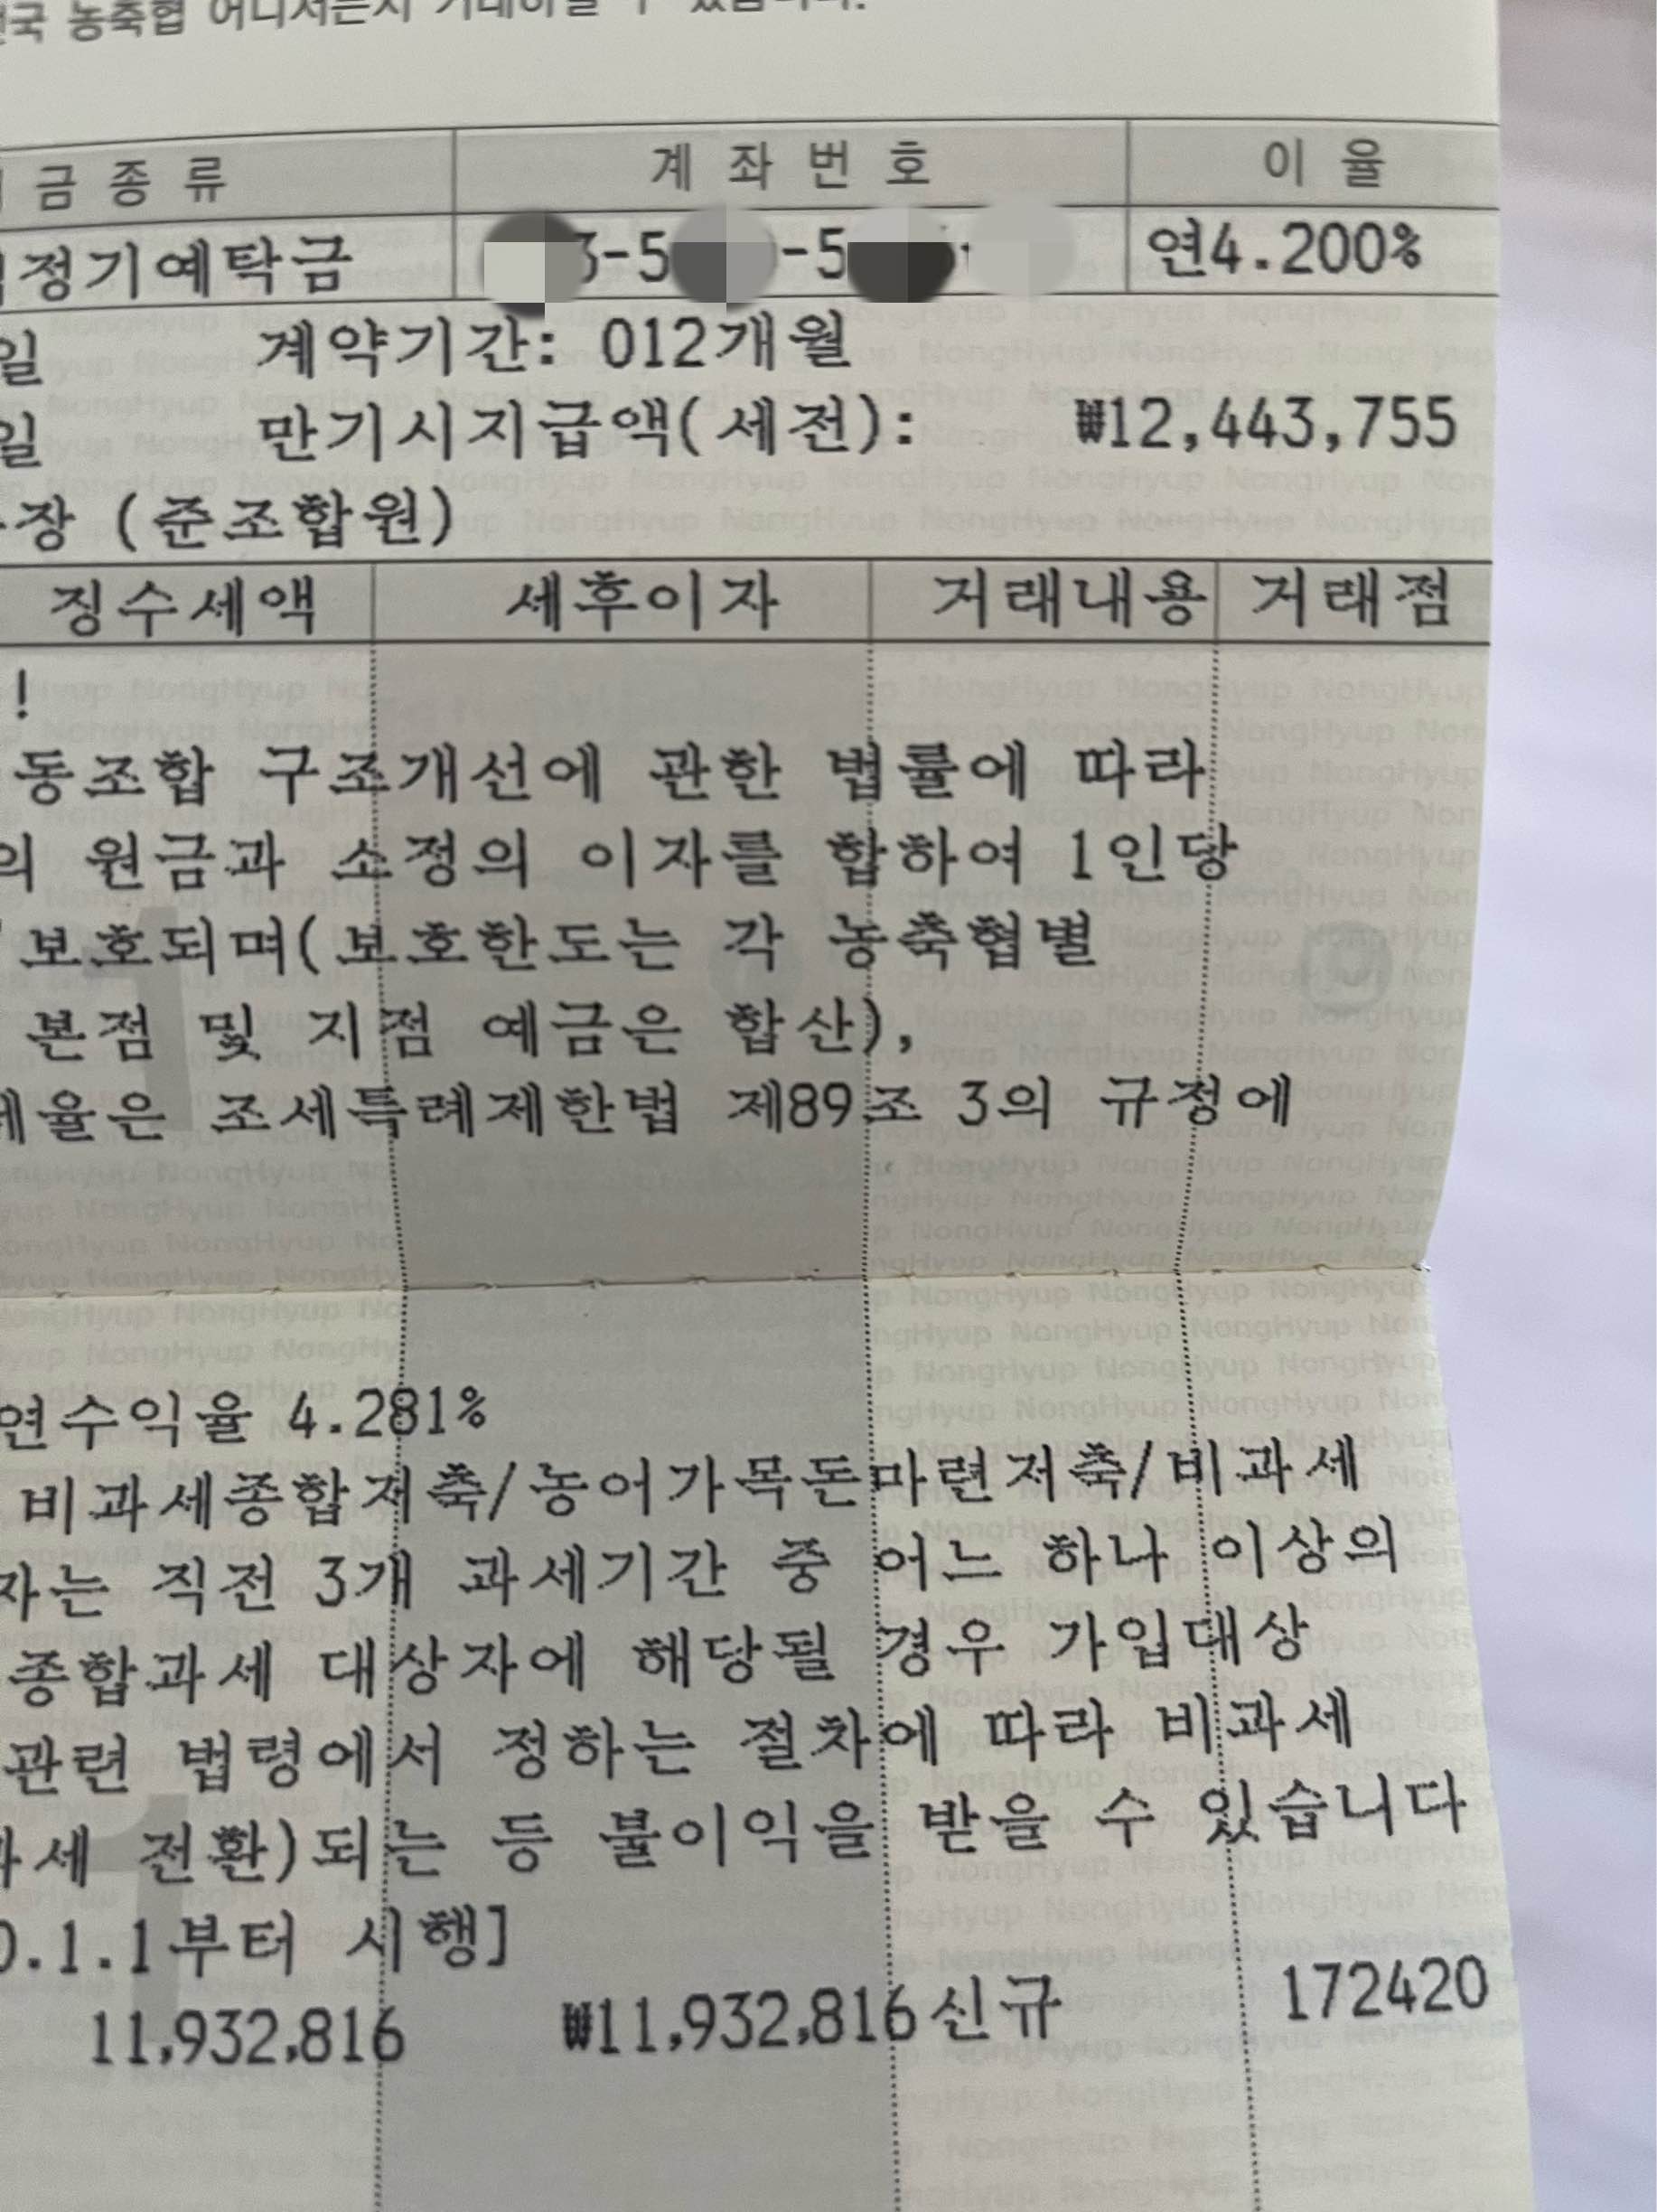 농축협
금종류 계좌번호 이율
정기예탁금 3-5 -5 연4.200%
일 계약기간: 012개월
일 만기시지급액(세전): ₩12,443,755
장 (준조합원)
징수세액 세후이자 거래내용 거래점
!
동조합 구조개선에 관한 법률에 따라
의 원금과 소정의 이자를 합하여 1인당
보호되며(보호한도는 각 농축협별
본점 및 지점 예금은 합산),
세율은 조세특례제한법 제89조 3의 규정에
연수익율 4.281%
비과세종합저축/농어가목돈마련저축/비과세
자는 직전 3개 과세기간 중 어느 하나 이상의
종합과세 대상자에 해당될 경우 가입대상
관련 법령에서 정하는 절차에 따라 비과세
과세 전환)되는 등 불이익을 받을 수 있습니다
0.1.1부터 시행]
11,932,816 ₩11,932,816 신규 172420